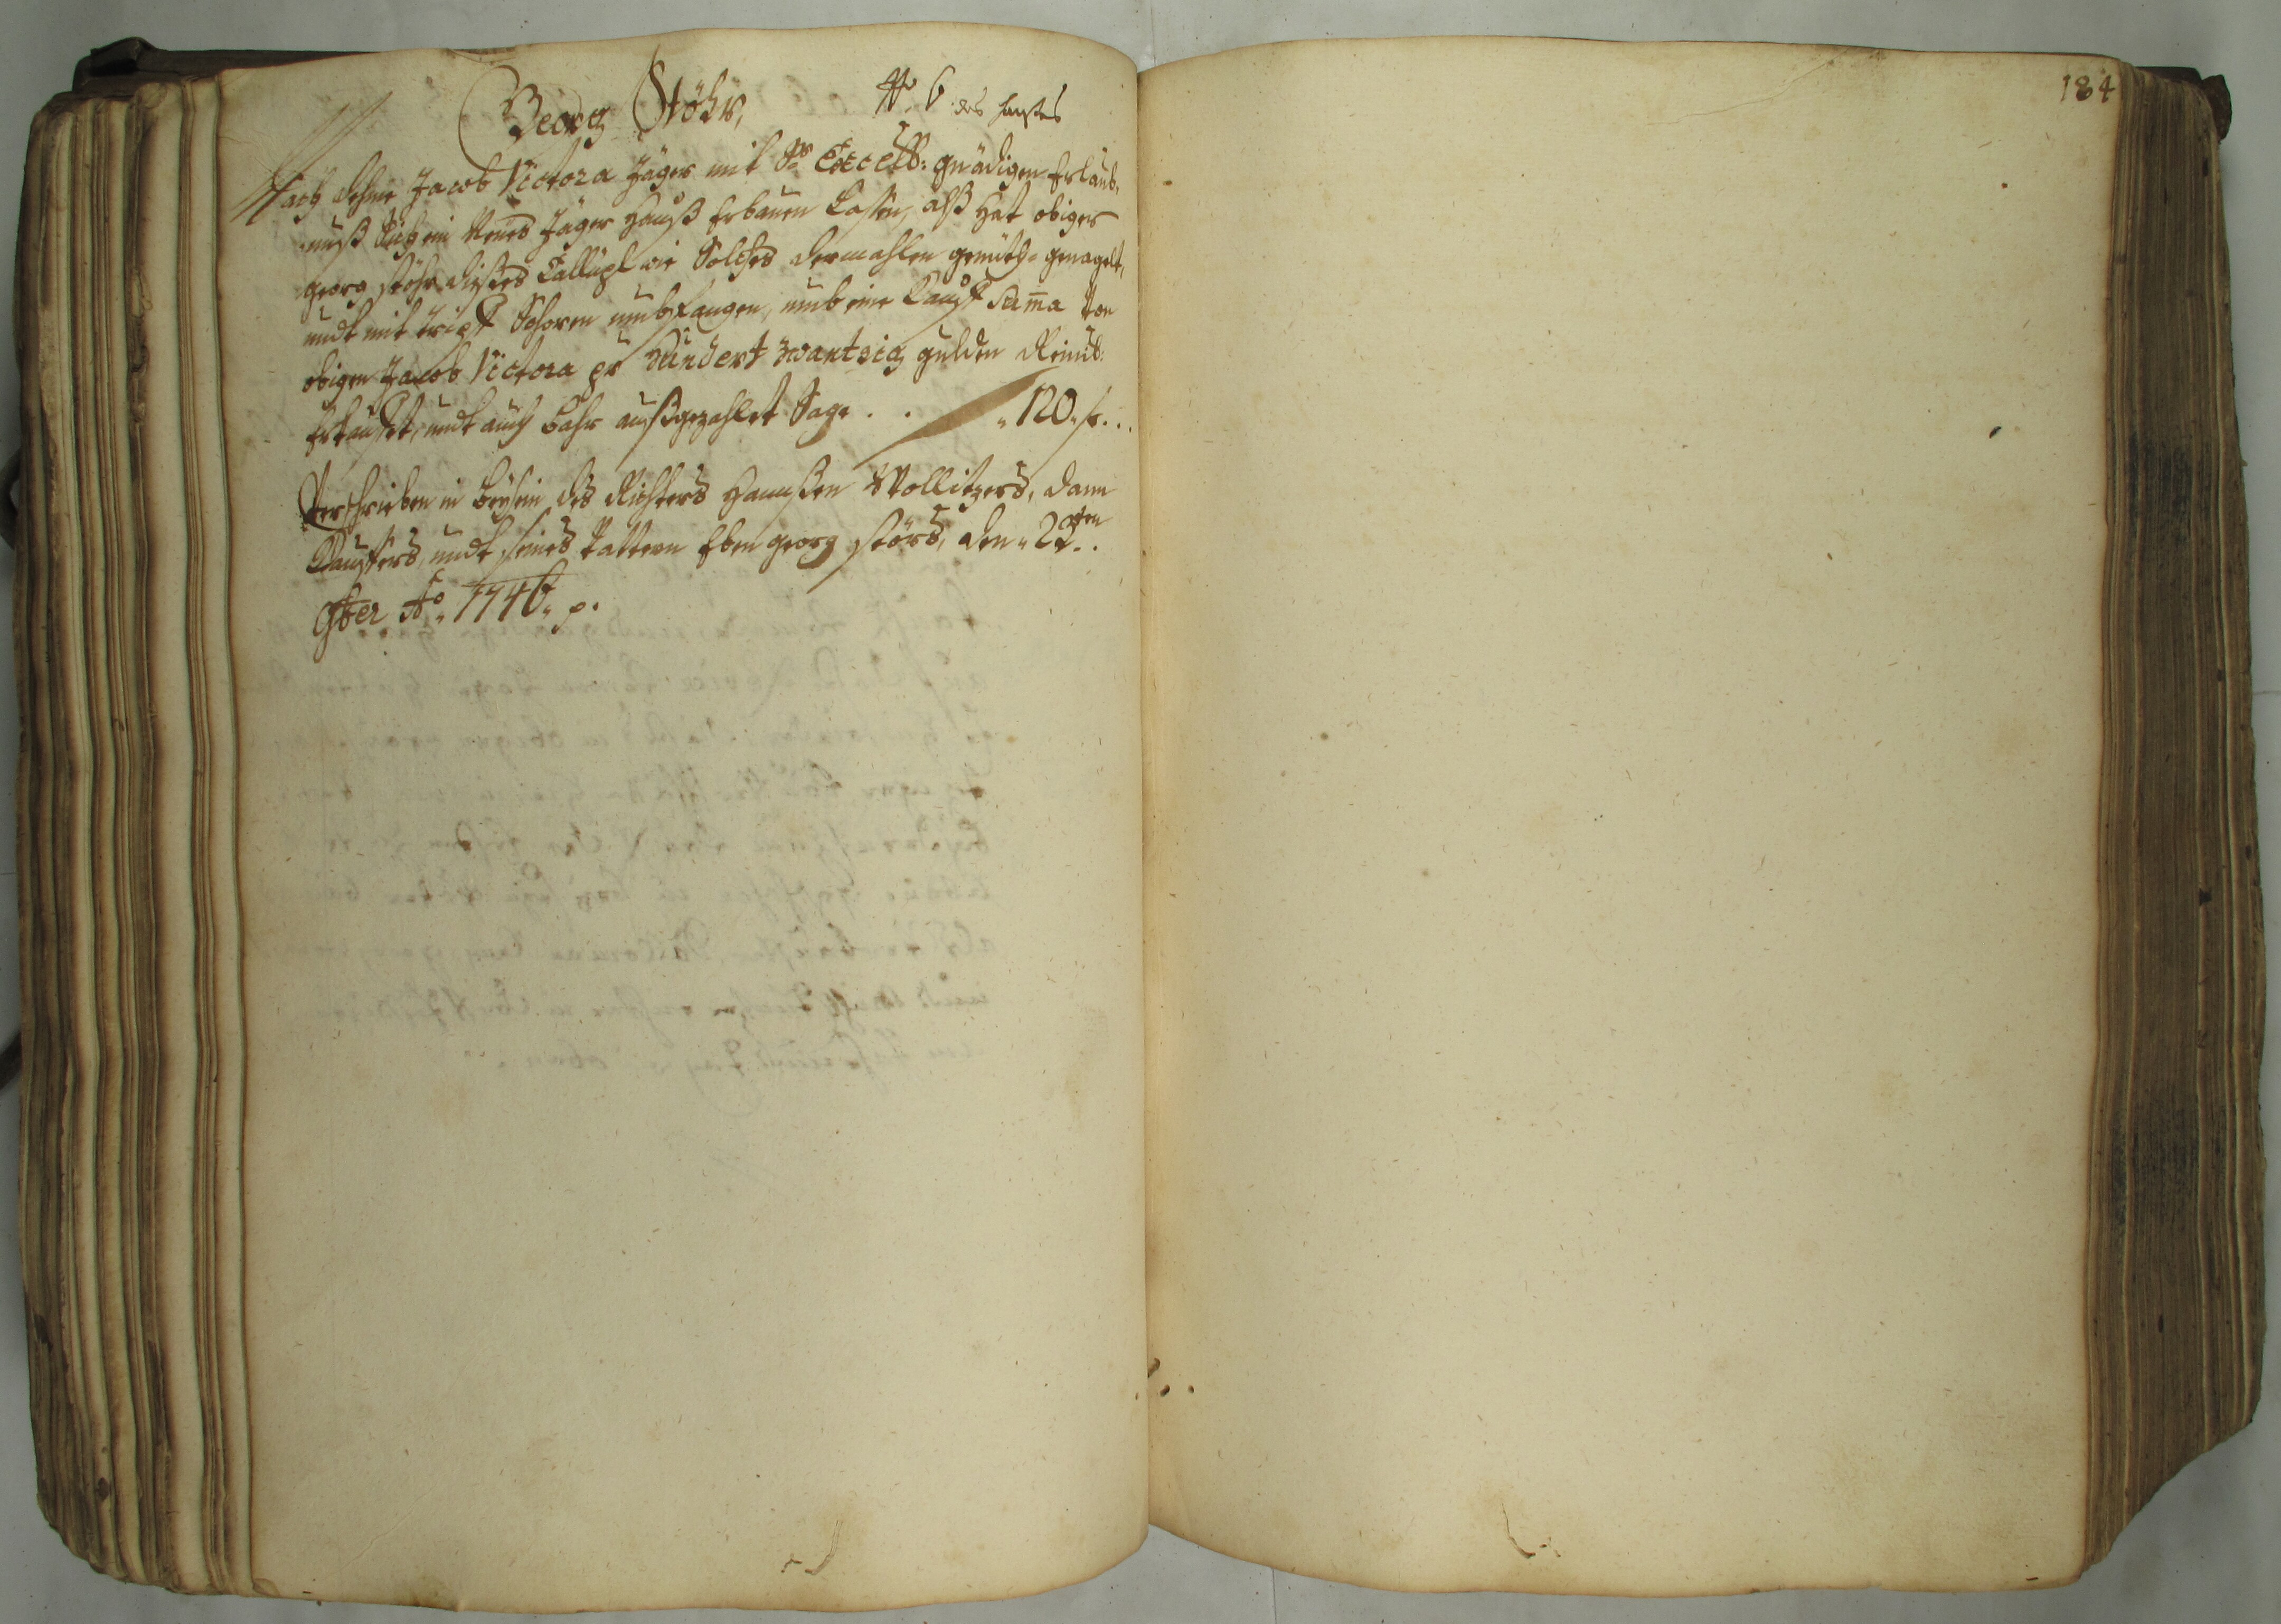 184
Georg Stöhr, No 6 des hauses
Nach dehme Jacob Victora Jäger mit Sr Excell: gnädigen Erlaub„
nuß Sich ein Neües Jäger Hauß Erbauen Laßen, alß Hat obiger
georg stöhr dißes Callüpl wie Solches dermahlen genieth- genagelt,
undt mit Schoren umbfangen, umb eine Kauf Suma von
obigen Jacob Victora pr Hundert zwantzig gulden Reinis:
Erkauffet, undt auch bahr außgezahlet Sage . . „120„ f...
Verschrieben in beysein des Richters Hannßen Wollitzers, dann
Kauffers, undt seines Vattern Eben georg störs, den „22ten..
9ber Ao„ 1746„ p.